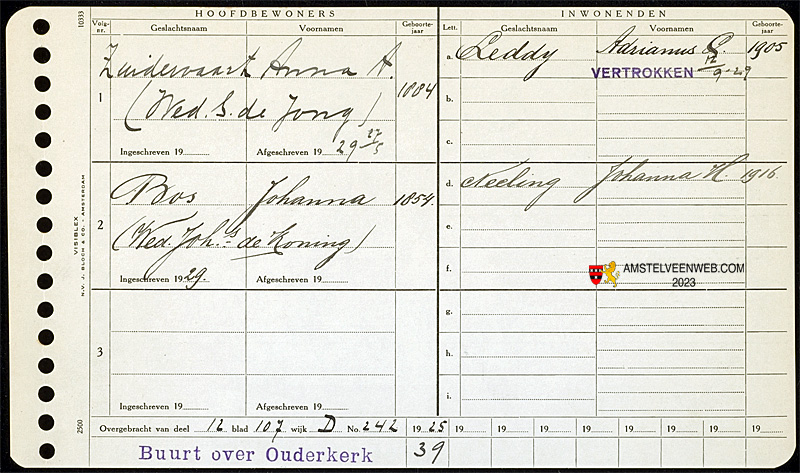 HOOFDBEWONERS INWONENDEN
Volg-nr. Geslachtsnaam Voornamen Geboorte-jaar Lett. Geslachtsnaam Voornamen Geboorte-jaar
1 Zuidervaart Anna A. 1884
(Wed. G. de Jong)
Ingeschreven 19 Afgeschreven 19 29 27/5
a. Leddy Adrianus G. 1905
VERTROKKEN 12/9-29
b.
c.
2 Bos Johanna 1854
(Wed. Joh.s de Koning)
Ingeschreven 19 29. Afgeschreven 19
d. Neeling Johanna H. 1916.
e.
f.
AMSTELVEENWEB.COM
2023
3
Ingeschreven 19 Afgeschreven 19
g.
h.
i.
Overgebracht van deel 12 blad 107 wijk D No. 242 19 25 19 19 19 19 19 19 19 19
Buurt over Ouderkerk 39
10333
VISIBLEX
N.V. J. BLOCH & CO. - AMSTERDAM
2500